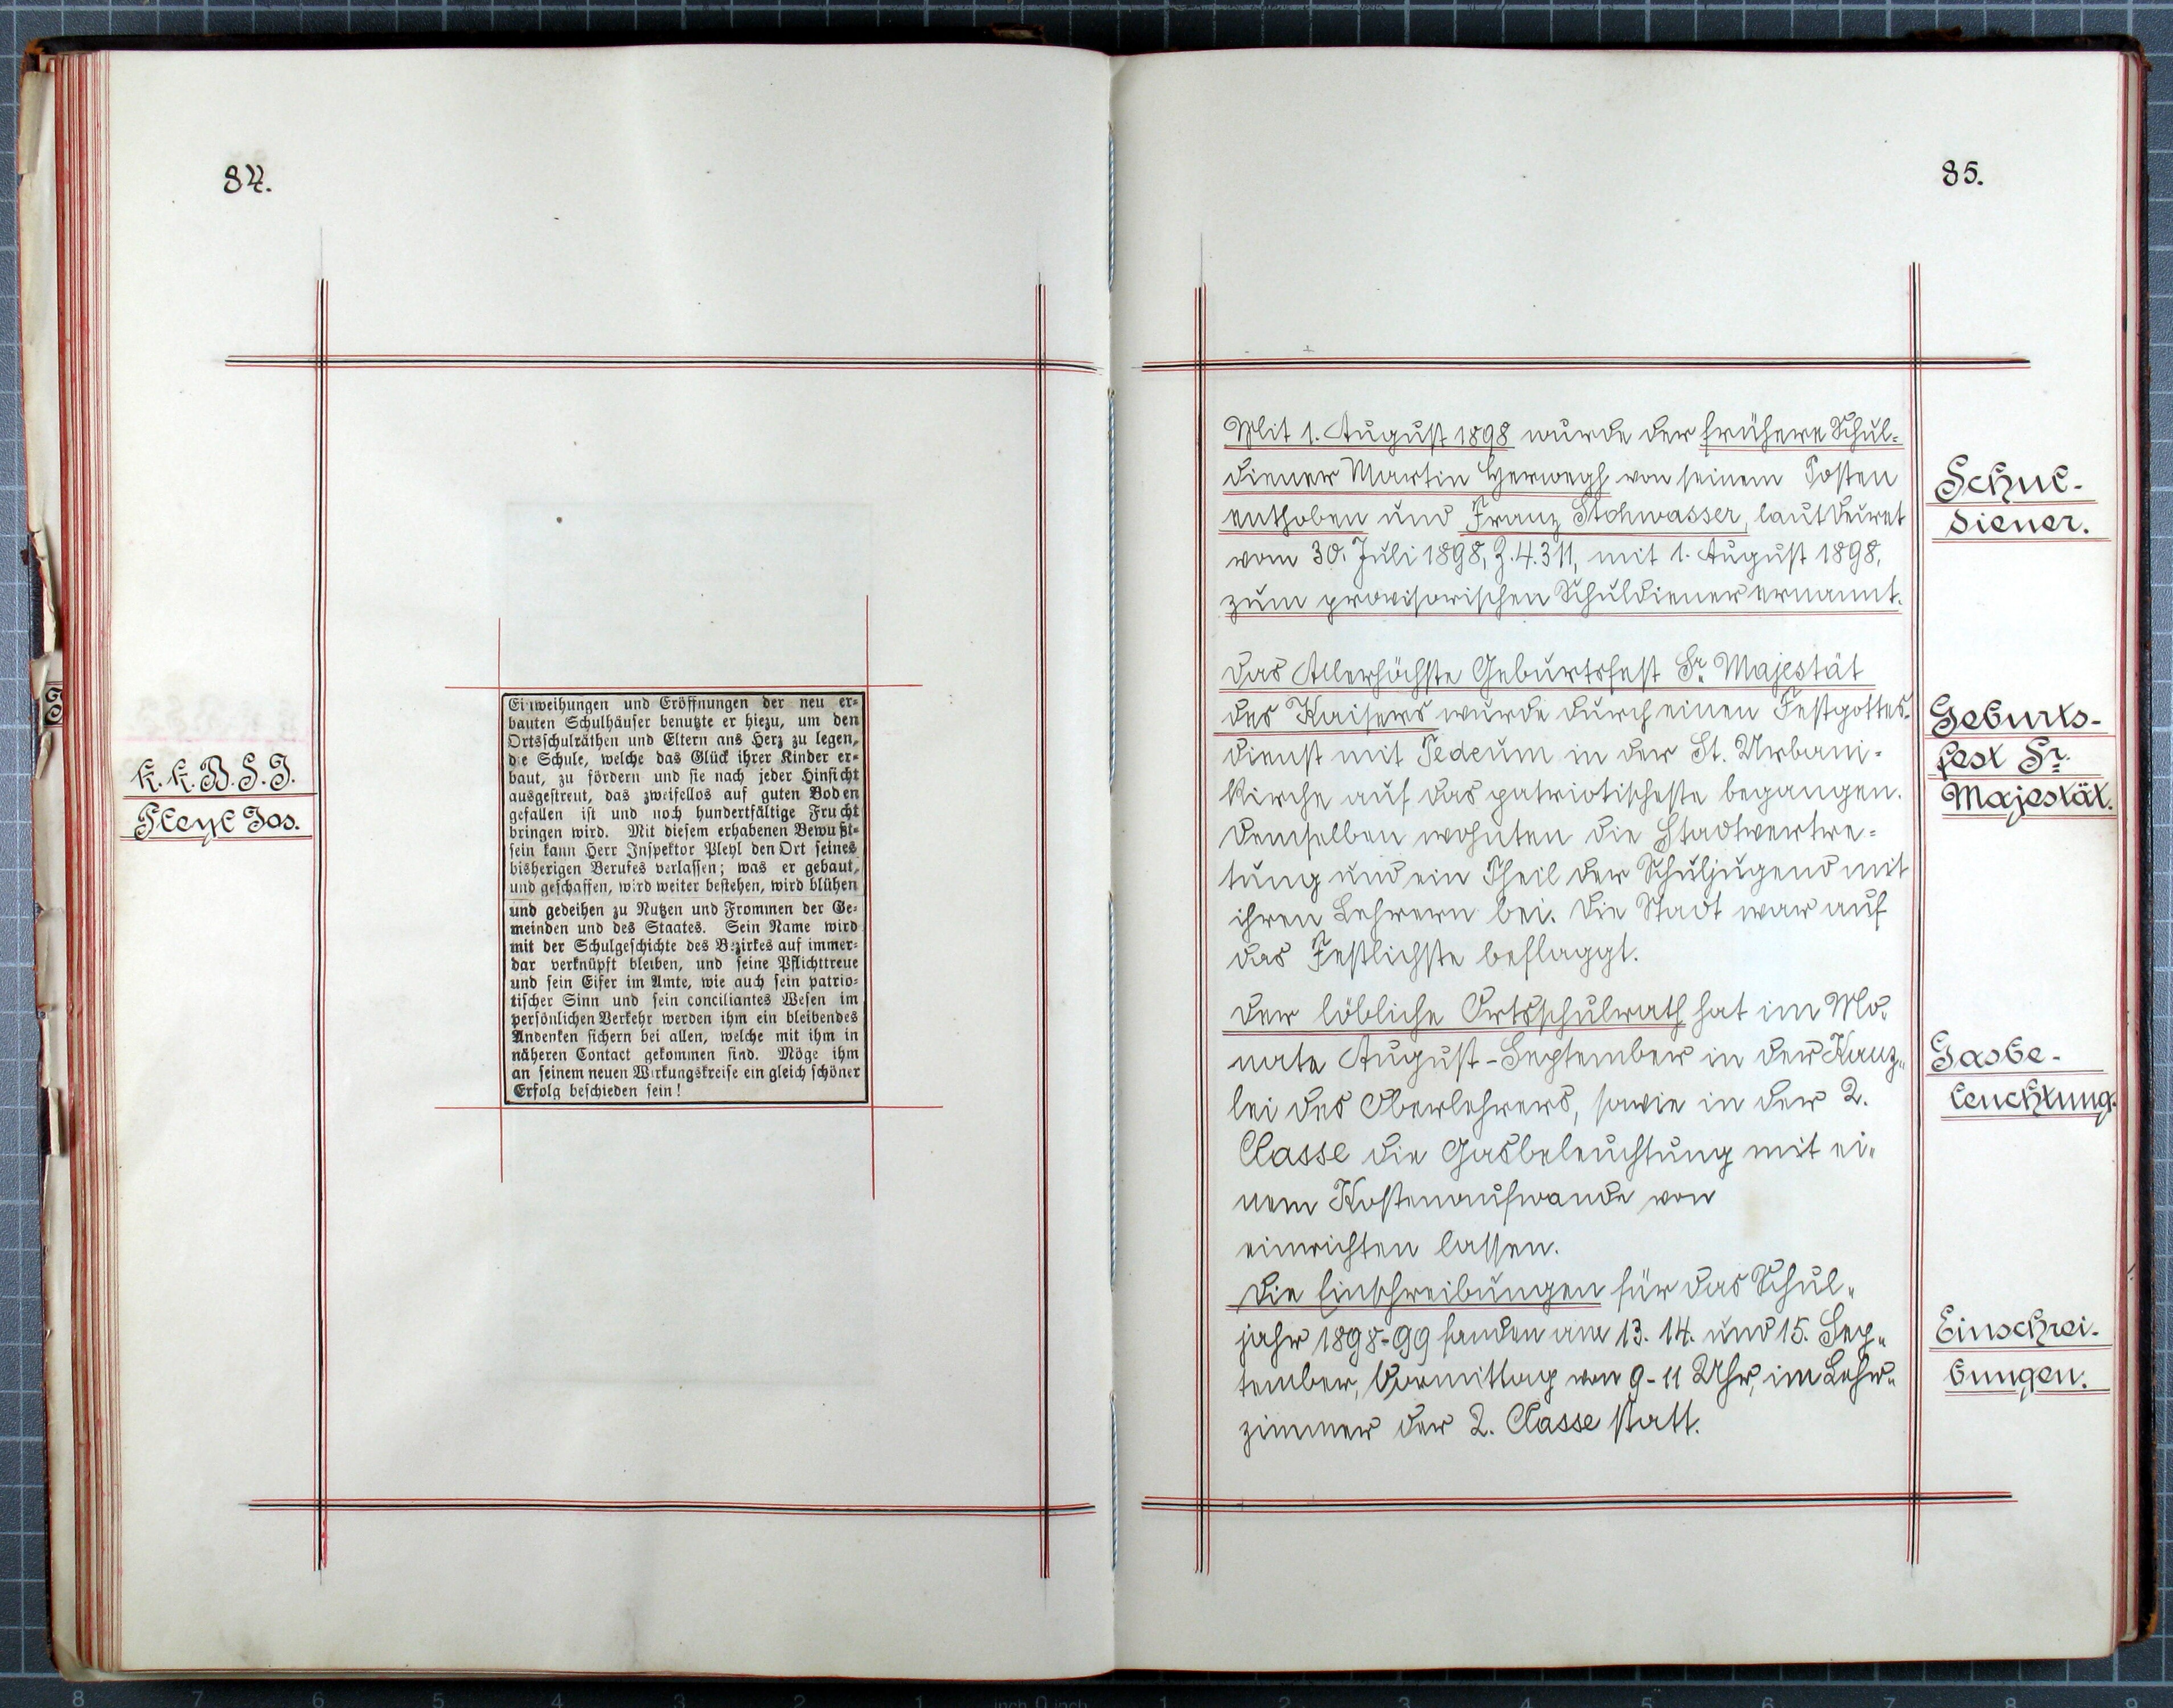 84.
k. k. B. S. I.
Pleyl Jos.
Einweihungen und Eröffnungen der neu er-
bauten Schulhäuser benutzte er hiezu, um den
Ortsschulräthen und Eltern ans Herz zu legen,
die Schule, welche das Glück ihrer Kinder er-
baut, zu fördern und sie nach jeder Hinsicht
ausgestreut, das zweifellos auf guten Boden
gefallen ist und noch hundertfältige Frucht
bringen wird. Mit diesem erhabenen Bewußt-
sein kann Herr Inspektor Pleyl den Ort seines
bisherigen Berufes verlassen; was er gebaut,
und geschaffen, wird weiter bestehen, wird blühen
und gedeihen zu Nutzen und Frommen der Ge-
meinden und des Staates. Sein Name wird
mit der Schulgeschichte des Bezirkes auf immer-
dar verknüpft bleiben, und seine Pflichttreue
und sein Eifer im Amte, wie auch sein patrio-
tischer Sinn und sein conciliantes Wesen im
persönlichen Verkehr werden ihm ein bleibendes
Andenken sichern bei allen, welche mit ihm in
näheren Contact gekommen sind. Möge ihm
an seinem neuen Wirkungskreise ein gleich schöner
Erfolg beschieden sein!
85.
Mit 1. August 1898 wurde der frühere Schul-
diener Martin Herwegh von seinem Posten
enthoben und Franz Stohwasser, laut Decret
vom 30. Juli 1898, Z. 4.311, mit 1. August 1898,
zum provisorischen Schuldiener ernannt.
Schul-
diener.
Das Allerhöchste Geburtsfest Sr. Majestät
des Kaisers wurde durch einen Festgottes-
dienst mit Tedeum in der St. Urbani-
Kirche auf das patriotischeste begangen.
Demselben wohnten die Stadtvertre-
tung und ein Theil der Schuljugend mit
ihren Lehrern bei. Die Stadt war auf
das Festlichste beflaggt.
Geburts-
fest Sr.
Majestät.
Der löbliche Ortsschulrath hat im Mo-
nate August-September in der Kanz-
lei des Oberlehrers, sowie in der 2.
Classe die Gasbeleuchtung mit ei-
nem Kostenaufwande von
einrichten lassen.
Gasbe-
leuchtung.
Die Einschreibungen für das Schul-
jahr 1898-99 fanden am 13. 14. und 15. Sep-
tember, Vormittag von 9-11 Uhr, im Lehr-
zimmer der 2. Classe statt.
Einschrei-
bungen.
8 7 6 5 4 3 2 1 inch 0 inch 1 2 3 4 5 6 7 8 9